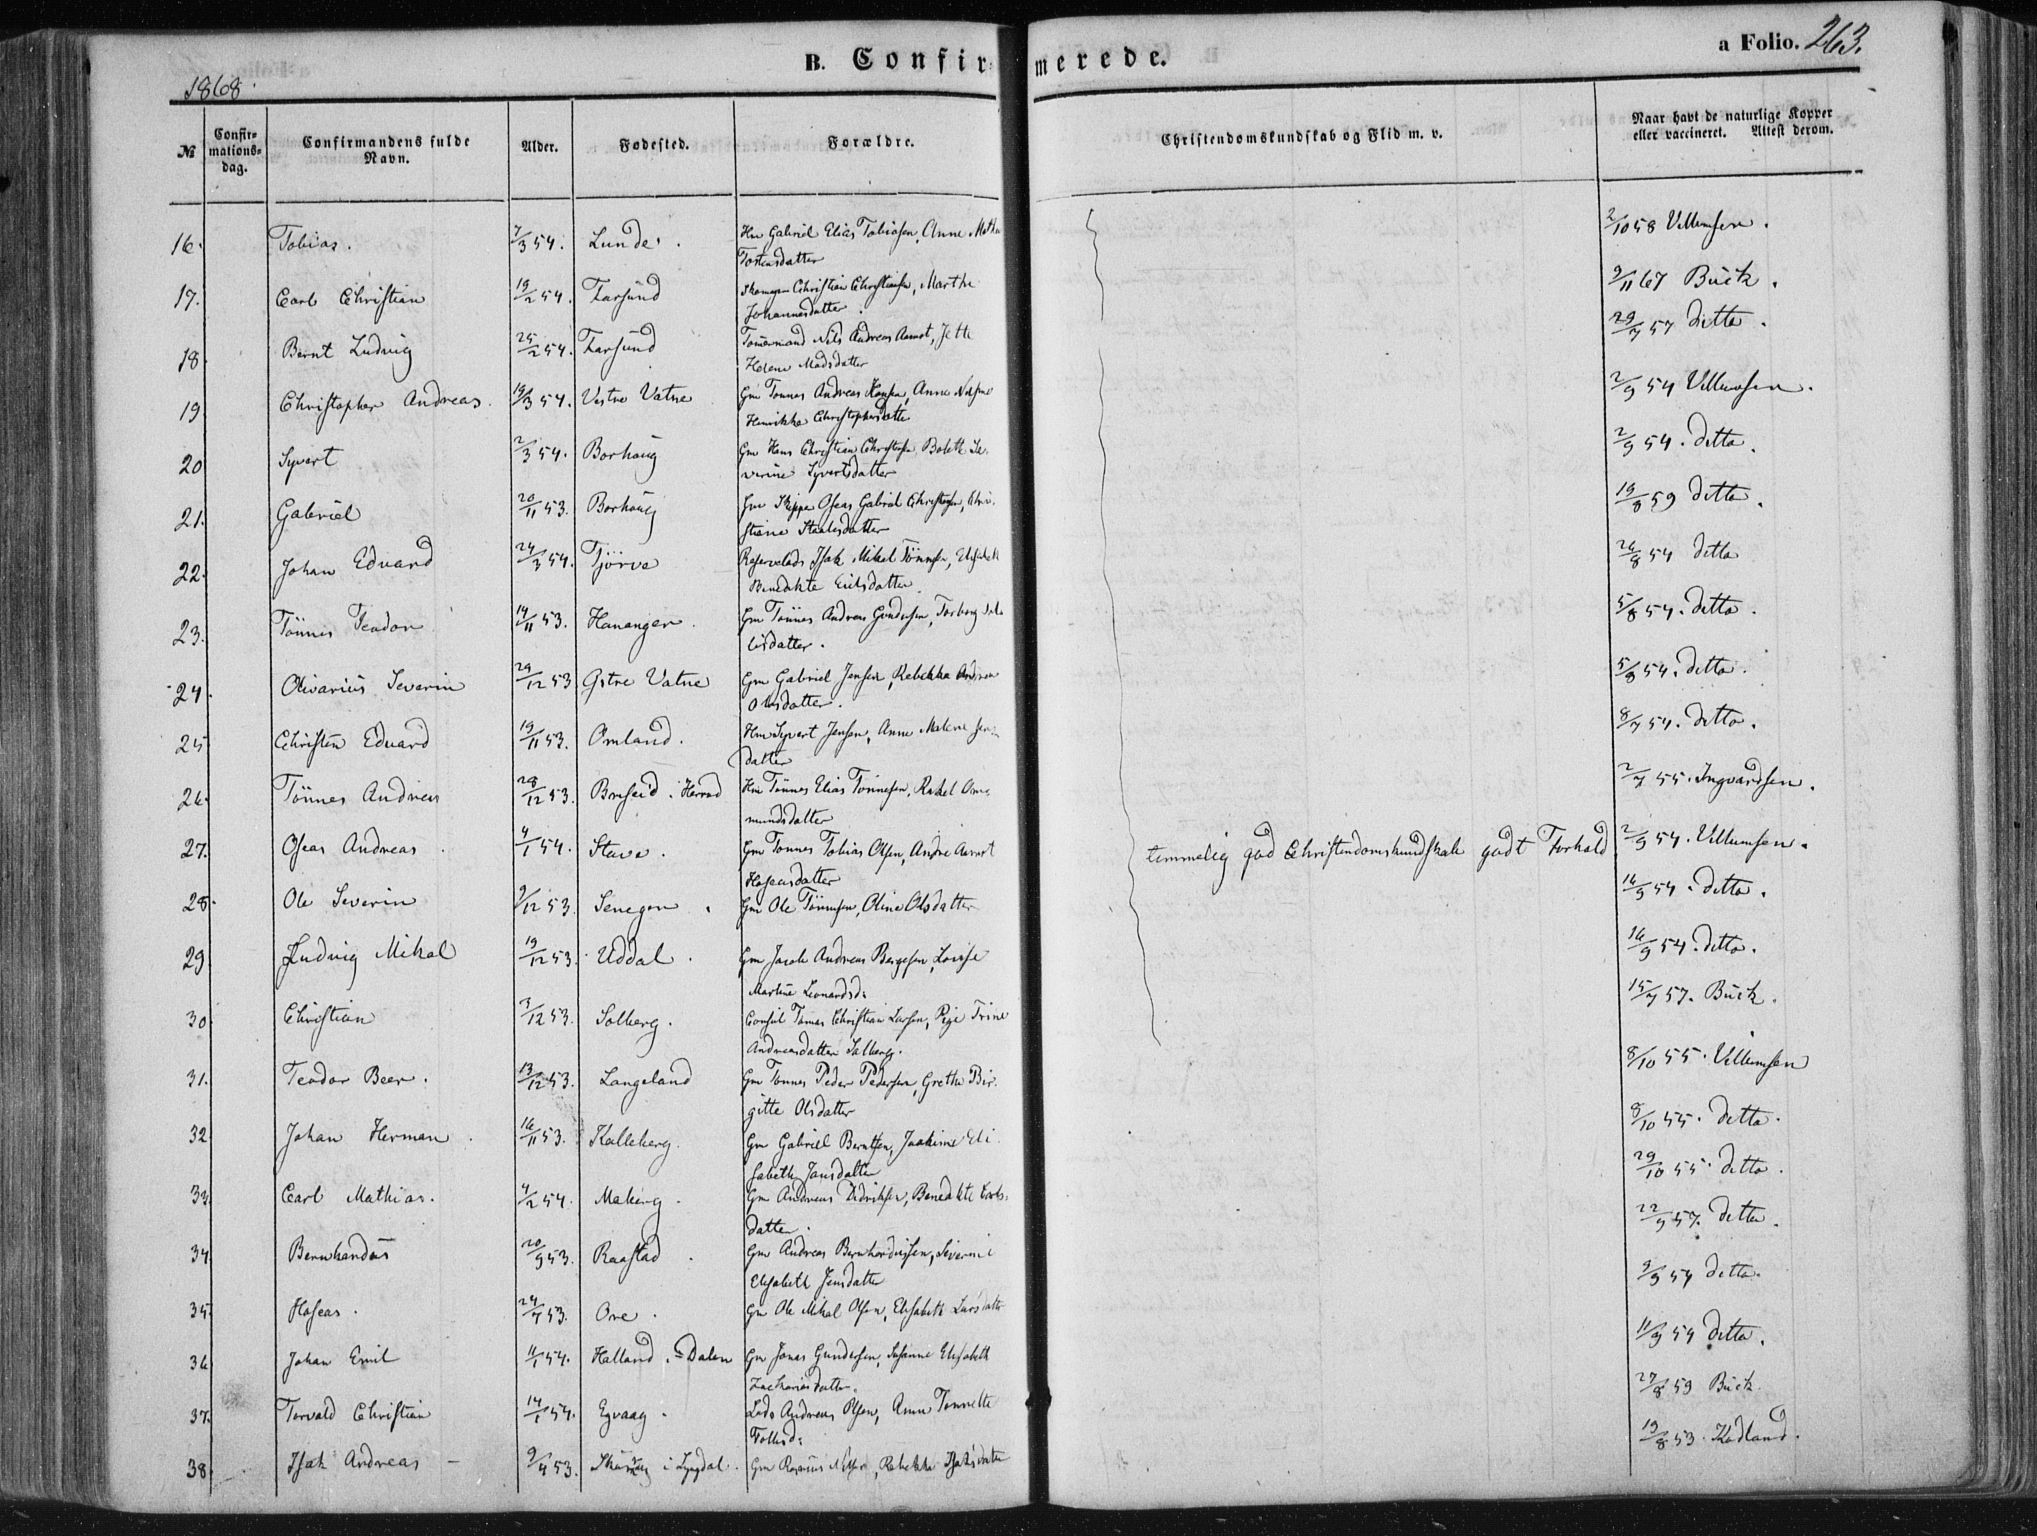 B. Confirmerede.
a Folio. 263.
1868.
№ Confirmationsdag. Confirmandens fulde Navn. Alder. Fødested. Forældre. Christendomskundskab og Flid m. v. Naar havt de naturlige Kopper eller vaccineret. Attest derom.
16. Tobias. 7/3 54. Lunde. Hm Gabriel Elias Tobiasen, Anne
Tostensdatter 2/10 58 Villumsen.
17. Carl Christian 19/2 54. Farsund Christian Christiansen, Marthe
Johannesdatter. 9/11 67 Buck.
18. Bernt Ludvig 25/2 54. Farsund Tømermand Nils Andreas Aamot, Jette
Helene Madsdatter 29/7 57 ditto.
19 Christopher Andreas. 19/3 54. Vestre Vatne Gm Tønnes Andreas Hansen, Anne
Henrikke Christophersdatter 2/9 54 Villumsen.
20 Syvert 2/3 54. Borhaug Gm Hans Christian Christensen, Bolette Se-
verine Syvertsdatter 2/9 54. ditto.
21. Gabriel 20/11 53. Borhaug Gm Skipper Oseas Gabriel Christensen, Chri-
stiane Staalesdatter 19/8 59 ditto.
22. Johan Edvard 24/3 54. Tjörve Reservelods Isak Mikal Tönnesen, Elisabeth
Benedikte Eilsdatter 26/8 54 ditto
23. Tönnes Teodor 14/11 53. Hananger. Gm Tönnes Andreas Gundersen, Torborg
datter. 5/8 54. ditto.
24. Olivarius Severin 29/12 53 Østre Vatne Gm Gabriel Jensen, Rebekka Andrea
Olsdatter. 5/8 54. ditto.
25 Christen Edvard 19/11 53. Omland. Hm Syvert Jensen, Anne Malene
datter 8/7 54. ditto.
26. Tönnes Andreas 28/12 53. Briseid i Herred Hm Tönnes Elias Tönnesen, Rakel Om-
mundsdatter 2/7 55. Ingvardsen.
27. Oseas Andreas. 4/1 54. Stave. Gm Tönnes Tobias Olsen, Andre Aamot
Hoseasdatter temmelig god Christendomskundskab godt Forhold 2/9 54. Villumsen.
28. Ole Severin 9/12 53. Senegen. Gm Ole Tönnesen, Oline Olsdatter 16/9 54. ditto.
29 Ludvig Mikal 19/12 53. Uddal. Gm Jacob Andreas Bergesen, Lovise
Martine Leonardsd: 16/9 54. ditto.
30. Christian 3/12 53. Solberg. Consul Tomas Christian Larsen, Pige Trine
Andreasdatter Salberg. 15/7 57. Buck.
31. Teodor Beer. 13/12 53. Langeland Gm Tönnes Peder Pedersen, Grethe Bir-
gitte Olsdatter 8/10 55. Villumsen
32 Johan Herman. 16/11 53. Kalleberg. Gm Gabriel Berntsen, Joakime Eli-
sabeth Jansdatter 8/10 55. ditto.
33. Carl Mathias. 4/2 54. Maberg. Gm Andreas Didriksen, Benedikte
datter. 29/10 55. ditto.
34. Bernhardus 20/9 53. Raastad. Gm Andreas Bernhardussen, Severine
Elisabeth Jensdatter 22/9 57. ditto.
35. Hoseas. 24/7 53. Ore. Gm Ole Mikal Olsen, Elisabeth Larsdatter 9/9 54 ditto.
36. Johan Emil 11/1 54. Halland i Dalen Gm Jonas Gundersen, Susanne Elisabeth
Zachariasdatter. 11/9 54 ditto.
37. Torvald Christian 14/1 54. Egvaag. Lods Andreas Olsen, Anne Tonette
Tollisd: 27/8 59 Buck.
38. Isak Andreas 9/4 53. i Lyngdal. Gm Rasmus Nilsen, Rebekka Isaksdatter 19/8 53. Kadland.